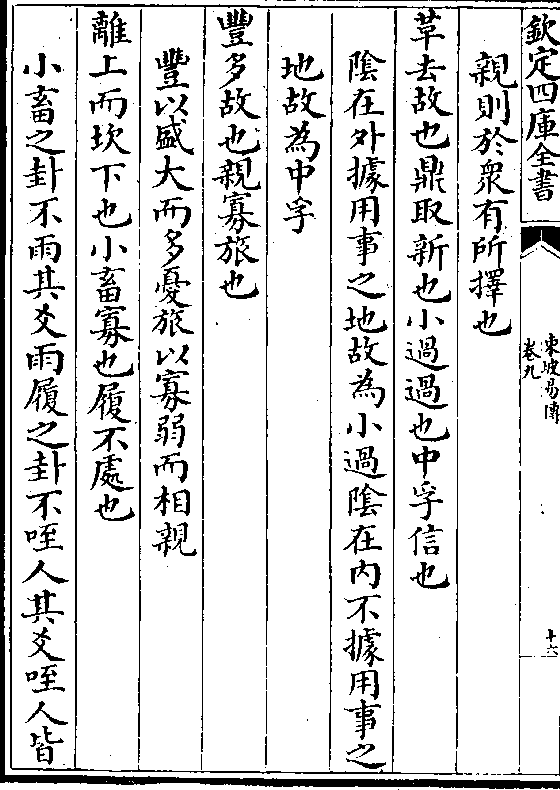 欽定四庫全書
東坡易傳
卷九
十六
親則於衆有所擇也
革去故也鼎取新也小過過也中孚信也
陰在外據用事之地故為小過陰在内不據用事之
地故為中孚
豐多故也親寡旅也
豐以盛大而多憂旅以寡弱而相親
離上而坎下也小畜寡也履不處也
小畜之卦不雨其爻雨履之卦不咥人其爻咥人皆